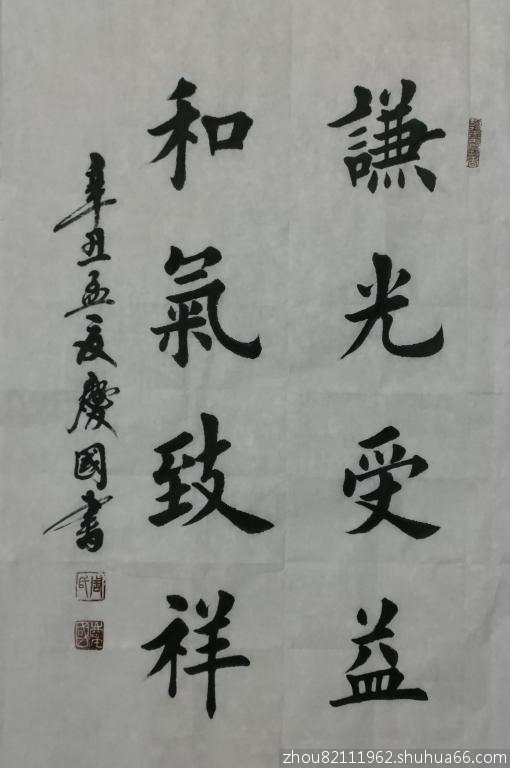 謙光受益
和氣致祥
辛丑孟夏慶國書
周氏
慶國
zhou82111962.shuhua66.com